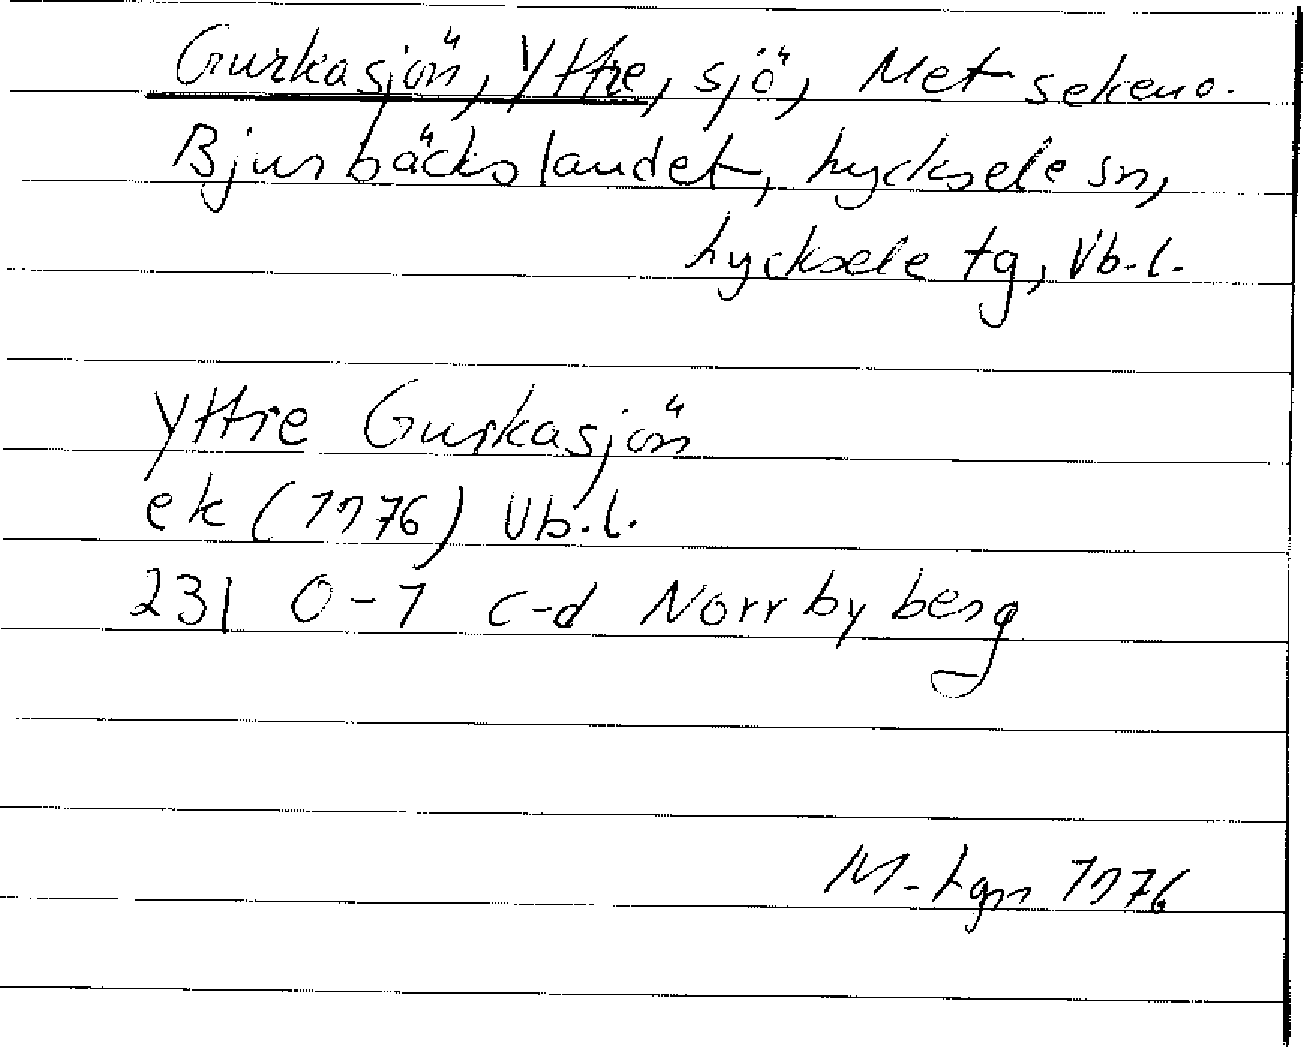 Gurkasjön, Yttre, sjö, NV et sekeno.
Bjurbäckslandet, Lycksele sn,
Lycksele tg, Vb.l.
Yttre Gurkasjön
ek (1976) Vb.l.
23I 0-1 c-d Norrbyberg
1976